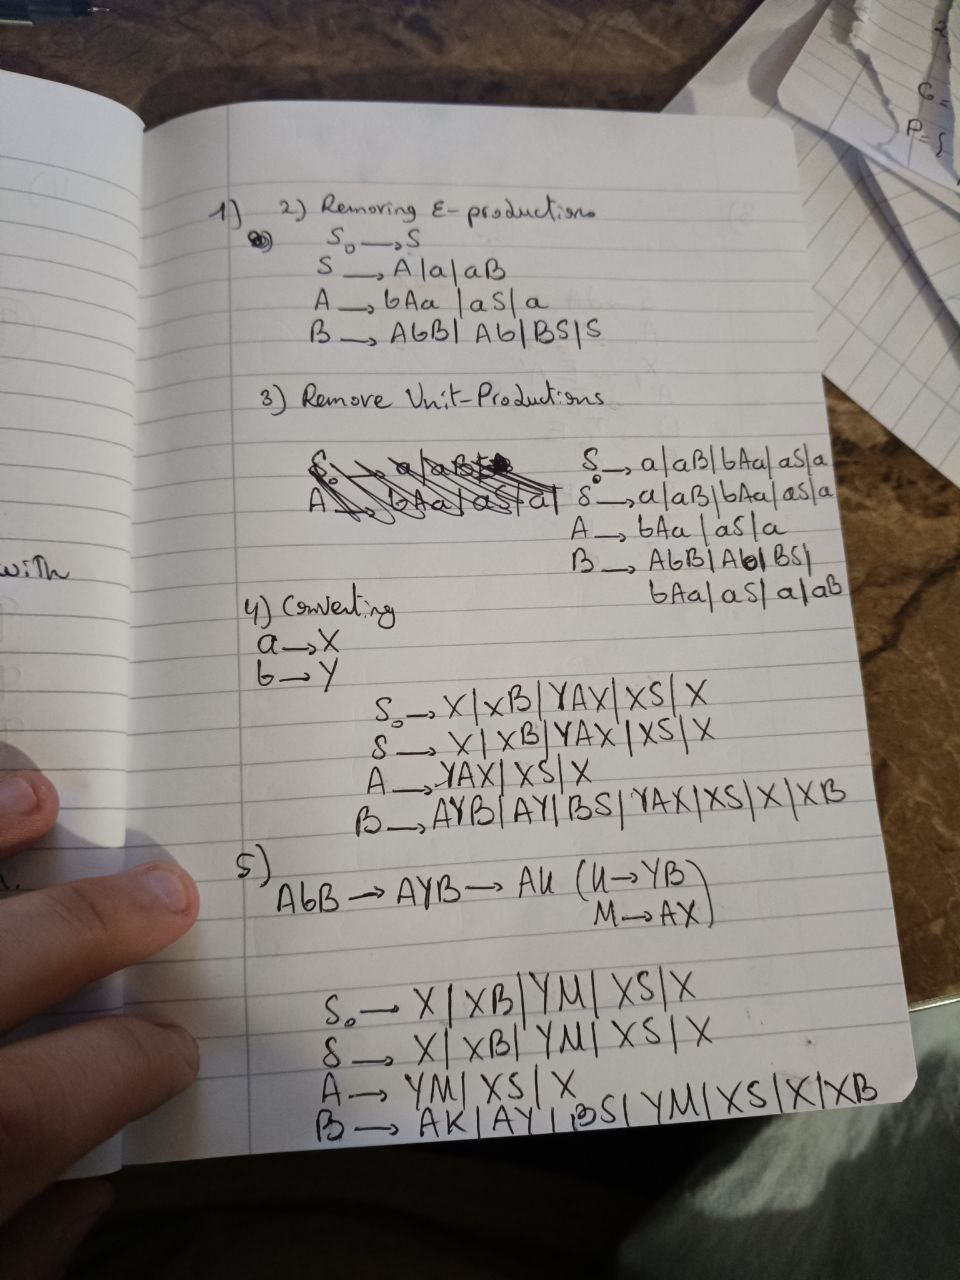 1) 2) Removing ε-productions
S₀ → S
S → A | a | aB
A → bAa | aS | a
B → AbB | Ab | BS | S
3) Remove Unit-Productions
S₀ → a | aB | bAa | aS | a
S → a | aB | bAa | aS | a
A → bAa | aS | a
B → AbB | Ab | BS |
bAa | aS | a | aB
with
4) Converting
a → X
b → Y
S₀ → X | XB | YAX | XS | X
S → X | XB | YAX | XS | X
A → YAX | XS | X
B → AYB | AY | BS | YAX | XS | X | XB
5)
AbB → AYB → AK (K → YB
M → AX)
S₀ → X | XB | YM | XS | X
S → X | XB | YM | XS | X
A → YM | XS | X
B → AK | AY | BS | YM | XS | X | XB
G=
P={